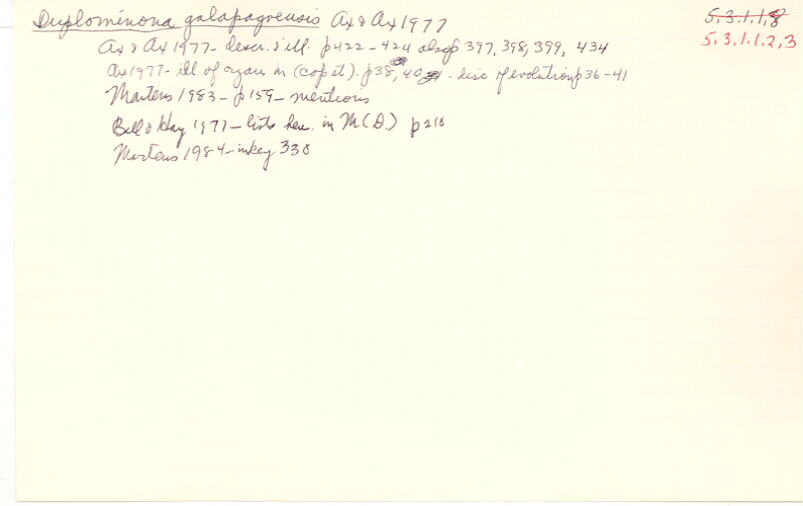 Duplominona galapagoensis Ax & Ax 1977
5.3.1.1.8
5.3.1.1.2,3
Ax & Ax 1977 - descr. & ill. p422-424 also p 397, 398, 399, 434
Ax 1977 - ill of organs in (cop et). p38, 40 - disc of evolution p36-41
Martens 1983 - p159 - mentions
Ball & Hay 1977 - lists here. in M(D.) p218
Martens 1984 - in key 330